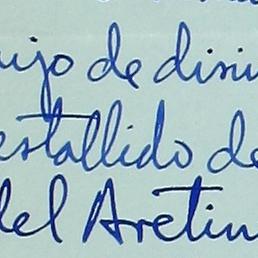 uijo de disin
estallido de
del Aretin